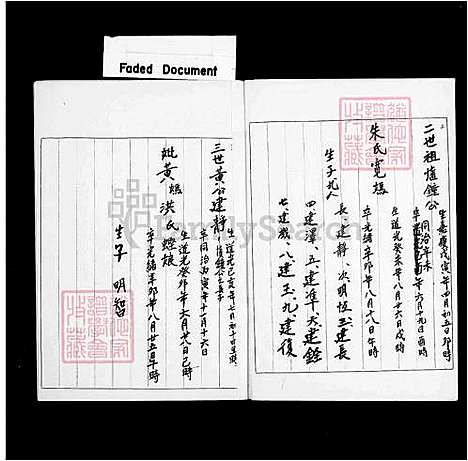 Faded Document
二世祖慎鐘公
生嘉慶戊寅年四月初五日卯時
同治辛未年六月十九日酉時
朱氏寬
生道光癸未年八月廿六日戌時
卒光緒辛卯年八月十八日午時
生子九人
長建靜、次明恆、三建長
四建澤、五建準、六建銓
七建戲、八建玉、九建復
三世黃公建靜
生道光己亥年七月初十日
卒同治丙寅年十一月十六日
妣黃 洪氏螺娘
生道光癸卯年六月廿八日己時
卒光緒辛卯年八月廿五日午時
生子 明哲
FamilySearch